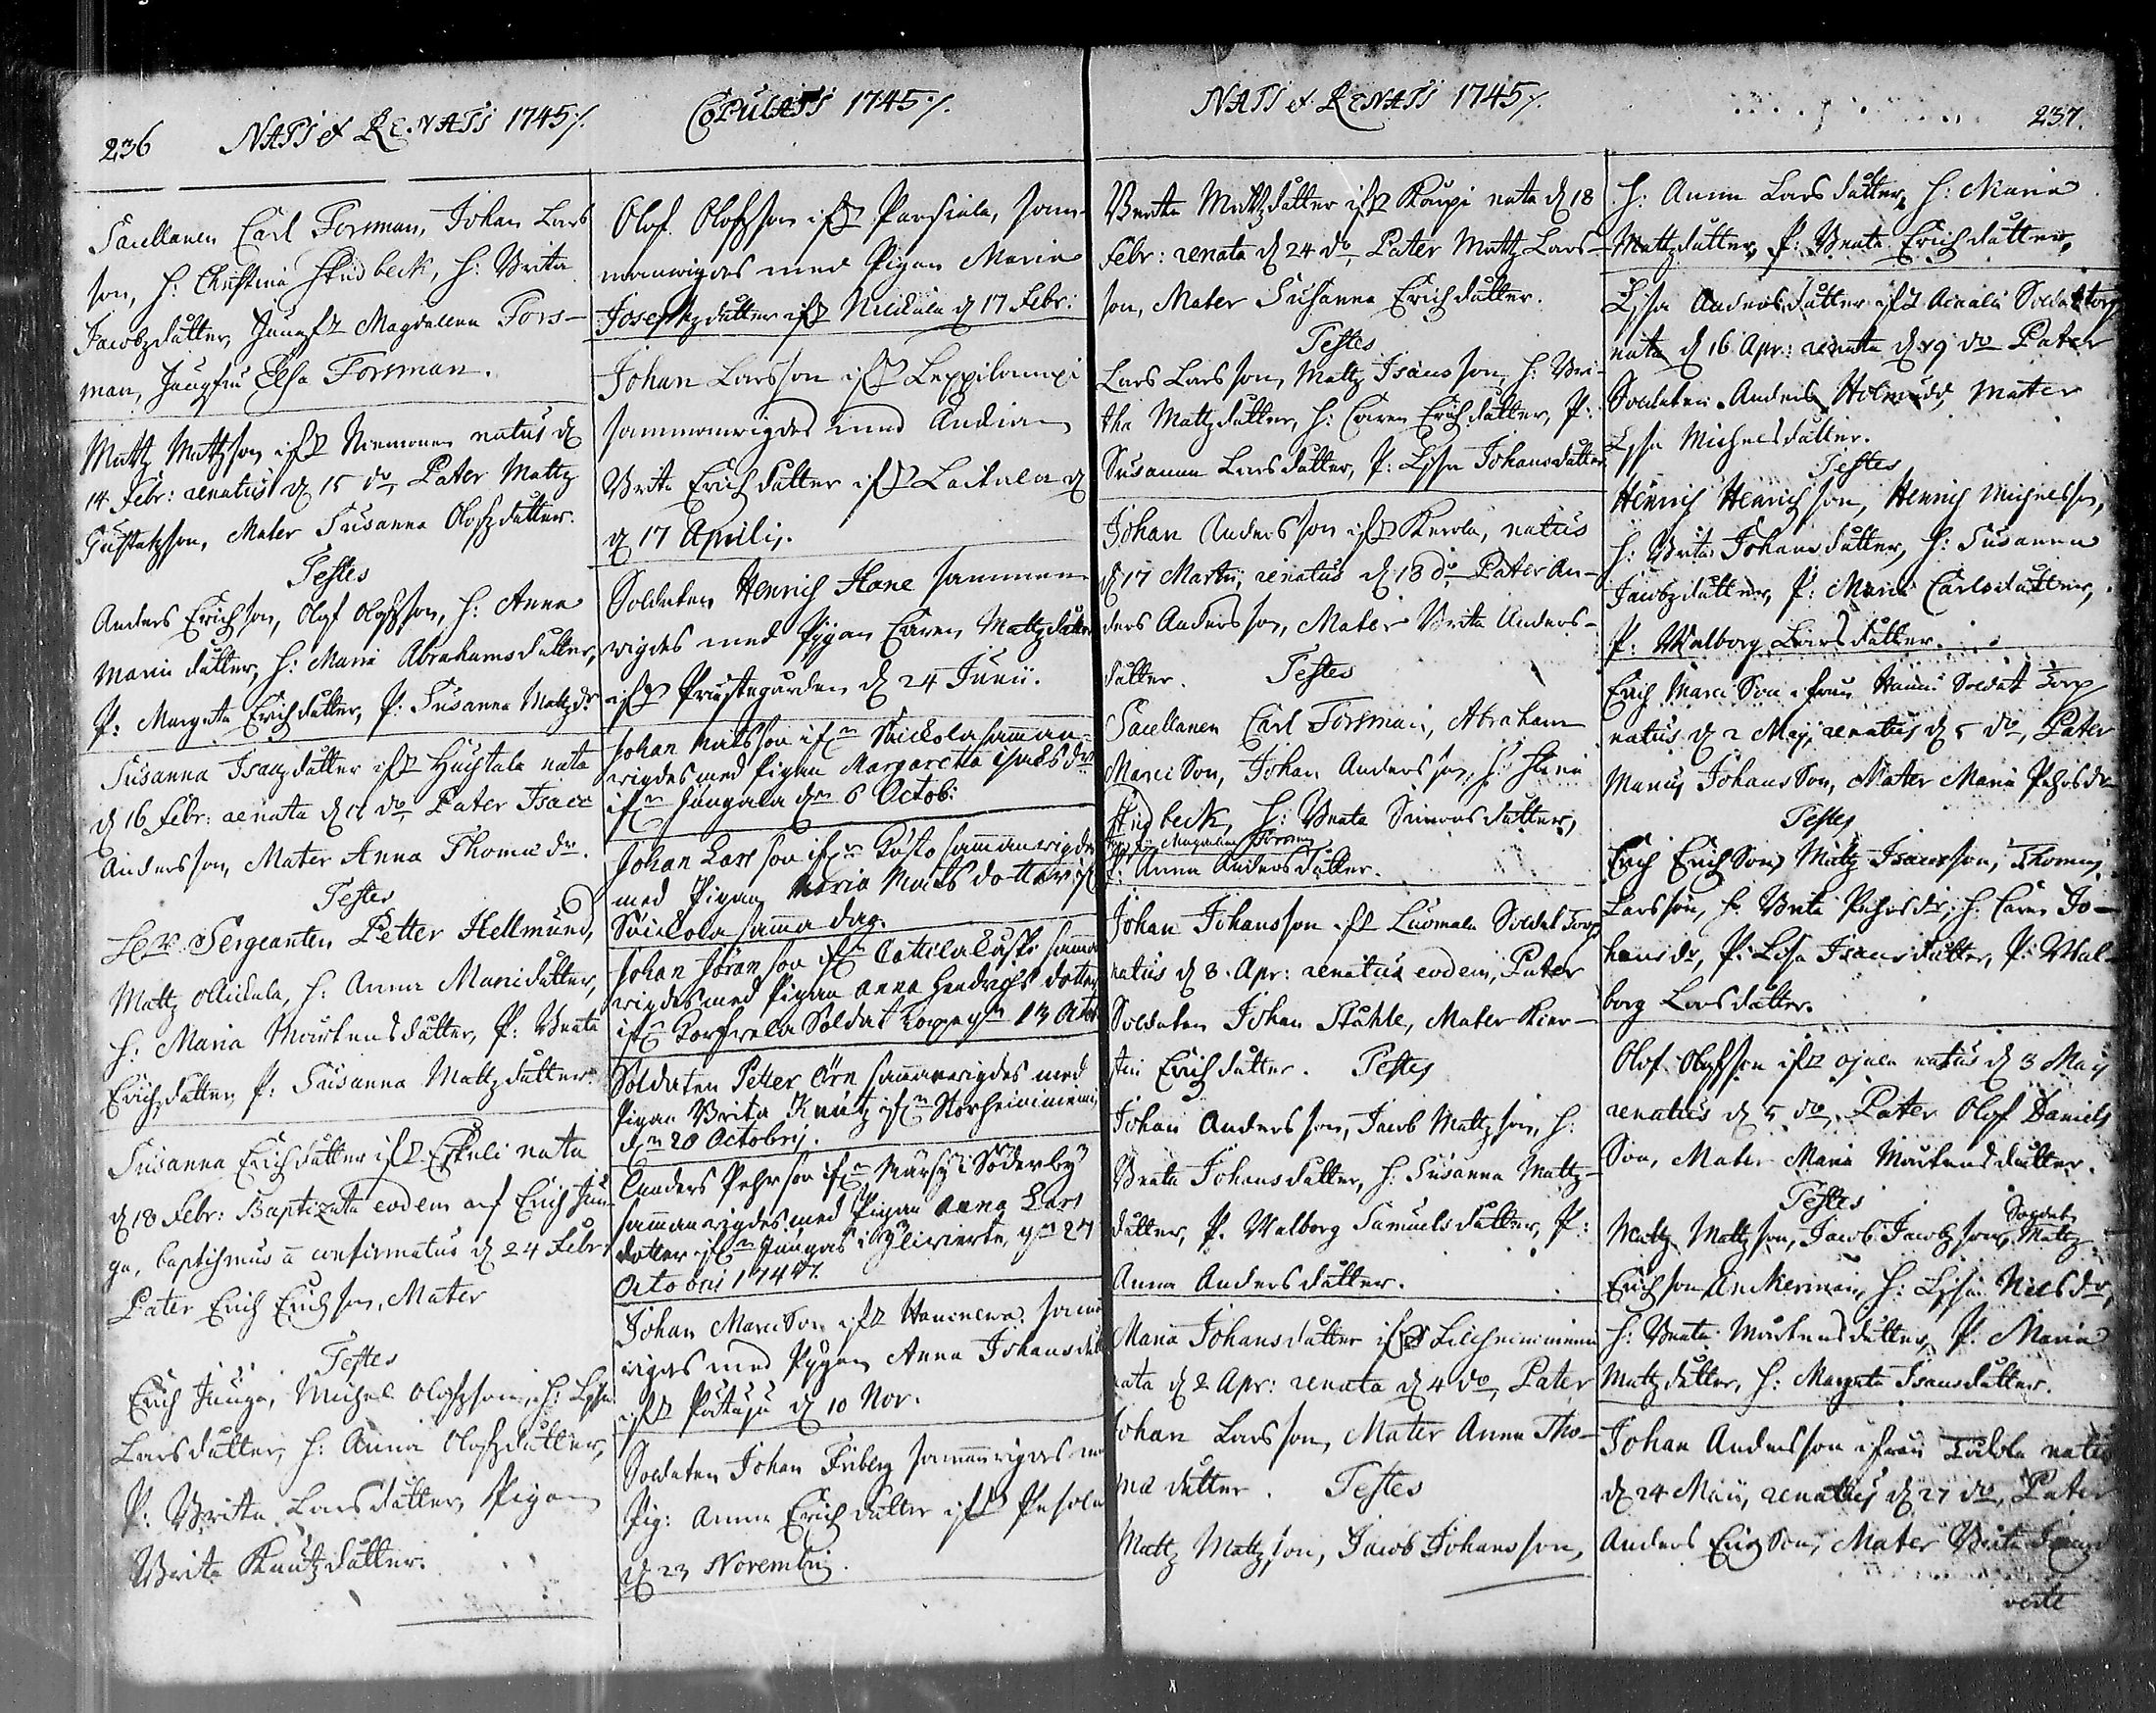 236 NATI et RENATI 1745 ⁒.
Sacellanen Carl Forsman, Johan Lars
son, H: Christina Skidbeck, H: Brita
Jacobzdutter, Jungfr Magdalena Fors-
man, Jungfru Elsa Forsman.
Mattz Mattzson ifr Niemonen natus d
14 Febr: renatus d 15 do, Pater Mattz
Gustafzson, Mater Susanna Olofzdutter.
Testes
Anders Erichson, Olof Olofzson, H: Anna
Marci dutter, H: Maria Abrahamsdutter,
P: Margeta Erichdutter, P: Susanna Mattzdr
Susanna Isaczdutter ifr Huhtala nata
d 16 Febr: renata d 17 do, Pater Isac
Andersson, Mater Anna Thomæ dr.
Testes
Sergeanten Petter Hellmund,
Mattz Mickala, H: Anna Marcidutter,
H: Maria Mårtensdutter, P: Beata
Erichdutter, P: Susanna Mattzdutter.
Susanna Erichdutter ifr Eskeli nata
d 18 Febr: Baptizata eodem af Erich Jun-
ga, baptismus confirmatus d 24 Febr:
Pater Erich Erichson, Mater
Testes
Erich Junga, Michel Olofzson, H: Lisa
Larsdutter, H: Anna Olofzdutter,
P: Brita Larsdutter, Pigan
Brita Knutzdutter.
COPULATI 1745 ⁒.
Olof Olofzson ifr Parsiala, sam-
manwigdes med Pigan Maria
Josephzdutter ifr Nickula d 17 Febr:
Johan Larsson ifr Leppilampi
sammanwigdes med Ändian
Brita Erichdutter ifr Laitala d
d 17 Aprilis.
Soldaten Henrich Hane samman-
wigdes med Pigan Caren Mattzdutter
ifr Prästegården d 24 Junii.
Johan Matsson ifrn Saickola samman-
wigdes med Pigan Margaretta Isacs dr
ifrn Jungala dn 6 Octob:
Johan Larsson ifrn Rosto sammanwigdes
med Pigan Maria Mats dotter if
Saickola samma dag.
Johan Göranson ifrn Cottila samma
wigdes med Pigan Anna Hendrichs dotter
ifrn Korfwela Soldat torp dn 13 Octob
Soldaten Petter Örn sammanwigdes med
Pigan Brita Knutz ifrn Storheinimem
dn 20 Octobris.
Anders Pehrson ifrn i Söderby
sammanwigdes med Pigan Anna Lars
dotter ifrn Jungas i Yliwierte dn 27
Octobris 1745.
Johan Marcison ifr samman
wigdes med Pigan Anna Johansdutter
ifr d 10 Nov.
Soldaten Johan Friberg sammanwigdes med
Pig: Anna Erichdutter ifr Pesola
d 23 Novembris.
NATI et RENATI 1745 ⁒.
Beata Mattzdutter ifr Kaupi nata d 18
Febr: renata d 24 do, Pater Mattz Lars-
son, Mater Susanna Erichdutter.
Testes
Lars Larsson, Mattz Isacsson, H: Bri-
tha Mattzdutter, H: Caren Erichdutter, P:
Susanna Larsdutter, P: Lisa Johansdutter
Johan Andersson ifr Kerola, natus
d 17 Martii, renatus d 18 do Pater An-
ders Andersson, Mater Brita Anders-
dutter. Testes
Sacellanen Carl Forsman, Abraham
Marcison, Johan Andersson, H: Stina
Skidbeck, H: Beata Simonsdutter,
Magdalena Forsm
P: Anna Andersdutter.
Johan Johansson ifr Luomala Soldat Torp
natus d 8. Apr: renatus eodem, Pater
Soldaten Johan Ståhle, Mater Kier-
stin Erichdutter. Testes
Johan Andersson, Jacob Mattzson, H:
Beata Johansdutter, H: Susanna Mattz-
dutter, P. Walborg Samuelsdutter, P:
Anna Andersdutter.
Maria Johansdutter ifr Lillheinimem
nata d 2 Apr: renata d 4 do, Pater
Johan Larsson, Mater Anna Tho-
mæ dutter. Testes
Mattz Mattzson, Jacob Johansson,
237.
H: Anna Larsdutter, H: Maria
Mattzdutter, P: Beata Erichdutter,
Lisa Andersdutter ifr Soldat torp
nata d 16 Apr: renata d 19 do Pater
Soldaten Anders Holmudd, Mater
Lisa Michelsdutter.
Testes
Henrich Henrichson, Henrich Michelsson,
H: Brita Johansdutter, H: Susanna
Jacobzdutter, P: Maria Carlsdutter,
P: Walborg Larsdutter.
Erich Marci Son ifrån Soldat Torp
natus d 2 Maij, renatus d 5 do, Pater
Marcus Johansson, Mater Maria Pehrsdr
Testes
Erich Erichson, Mattz Isacsson, Thomas
Larsson, H: Brita Pehrsdr, H: Caren Jo-
hansdr, P: Lisa Isacsdutter, P: Wal-
borg Larsdutter.
Olof Olofsson ifr Ojala natus d 3 Maij
renatus d 5 do, Pater Olof Daniels
Son, Mater Maria Mårtensdutter.
Testes
Mattz Mattzson, Jacob Jacobzson, Soldat Mattz
Erichson Anckerman, H: Lisa Nilsdr,
H: Beata Mårtensdutter, P. Maria
Mattzdutter, H: Margeta Isacsdutter.
Johan Andersson ifrån natus
d 24 Maij, renatus d 27 do, Pater
Anders Erichson, Mater Brita
verte